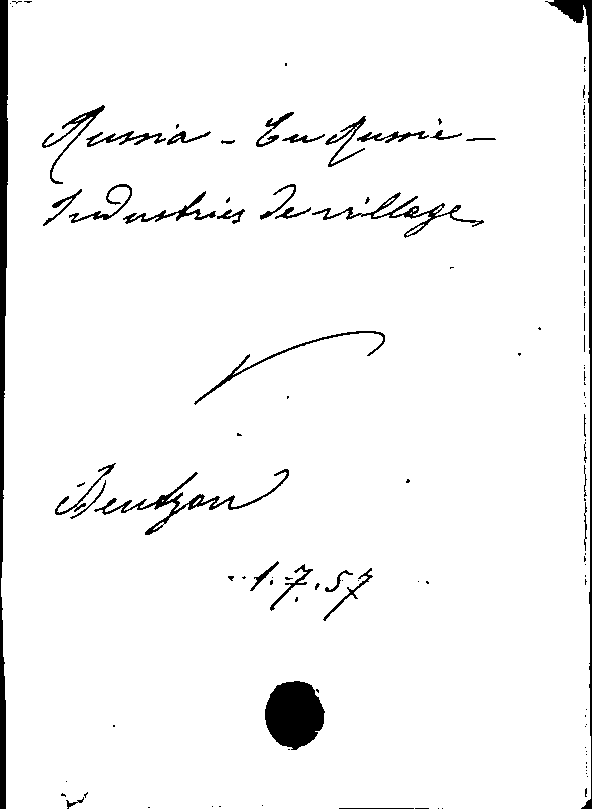 Russia - En Russie -
Industries de village
Bentzon
1.7.57